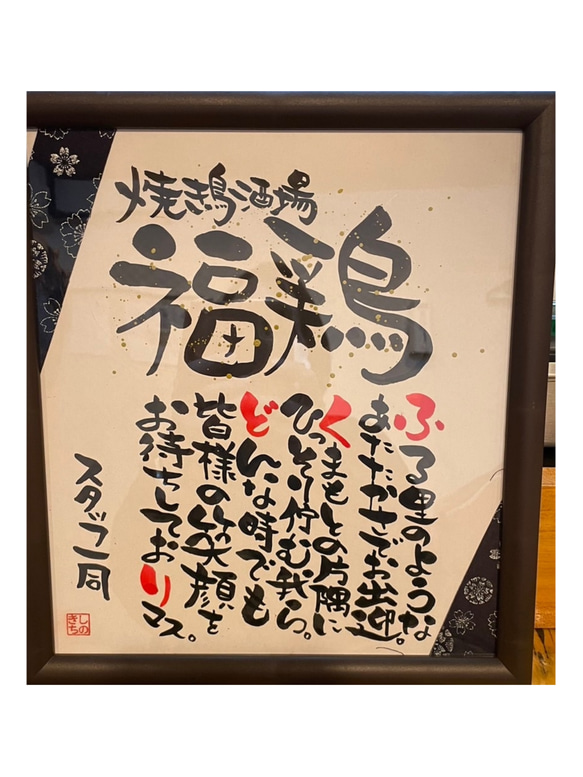 焼鶏酒場
福鶏
ふる里のような
あたたかさでお出迎。
くまもとの片隅に
ひっそり佇む我ら。
どんな時でも
皆様の笑顔を
お待ちしておりマス。
スタッフ一同
しのきち